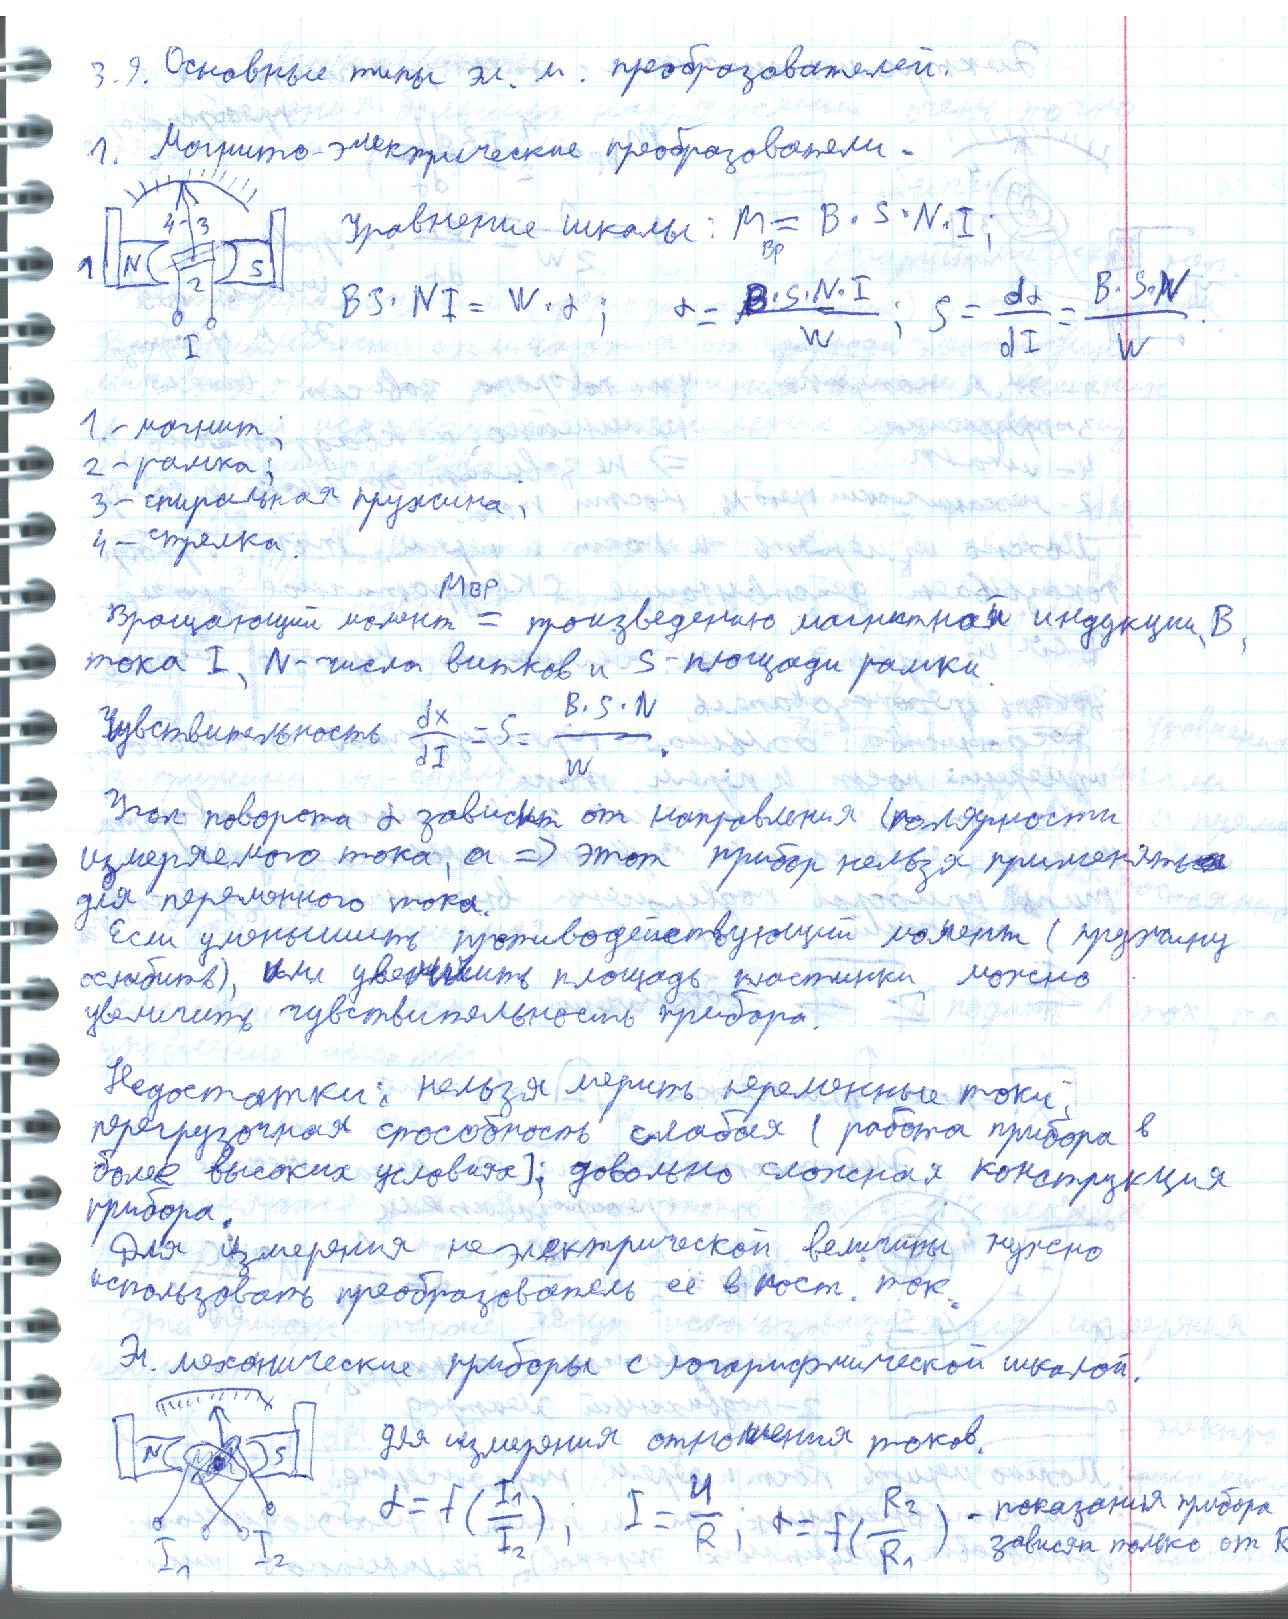 3.9. Основные типы эл. м. преобразователей.
1. Магнито-электрические преобразователи.
4 3
N S
1 2
I
Уравнение шкалы: Mвр = B·S·N·I;
BS·NI = W·α; α = B·S·N·I / W; S = dα/dI = B·S·N / W.
1.- магнит;
2 - рамка;
3 - спиральная пружина;
4 - стрелка.
Mвр
Вращающий момент = произведению магнитной индукции, B,
тока I, N - числа витков и S - площади рамки.
Чувствительность dx/dI = S = B·S·N / W.
Угол поворота α зависит от направления (полярности
измеряемого тока, а => этот прибор нельзя применять
для переменного тока.
Если уменьшить противодействующий момент (пружину
ослабить), или увеличить площадь пластинки, можно
увеличить чувствительность прибора.
Недостатки: нельзя мерить переменные токи;
перегрузочная способность слабая (работа прибора в
более высоких условиях); довольно сложная конструкция
прибора.
Для измерения неэлектрической величины нужно
использовать преобразователь её в пост. ток.
Эл. механические приборы с логарифмической шкалой.
N S
I₁ I₂
для измерения отношения токов.
α = f(I₁/I₂); I = U/R; α = f(R₂/R₁) - показания прибора
зависят только от R